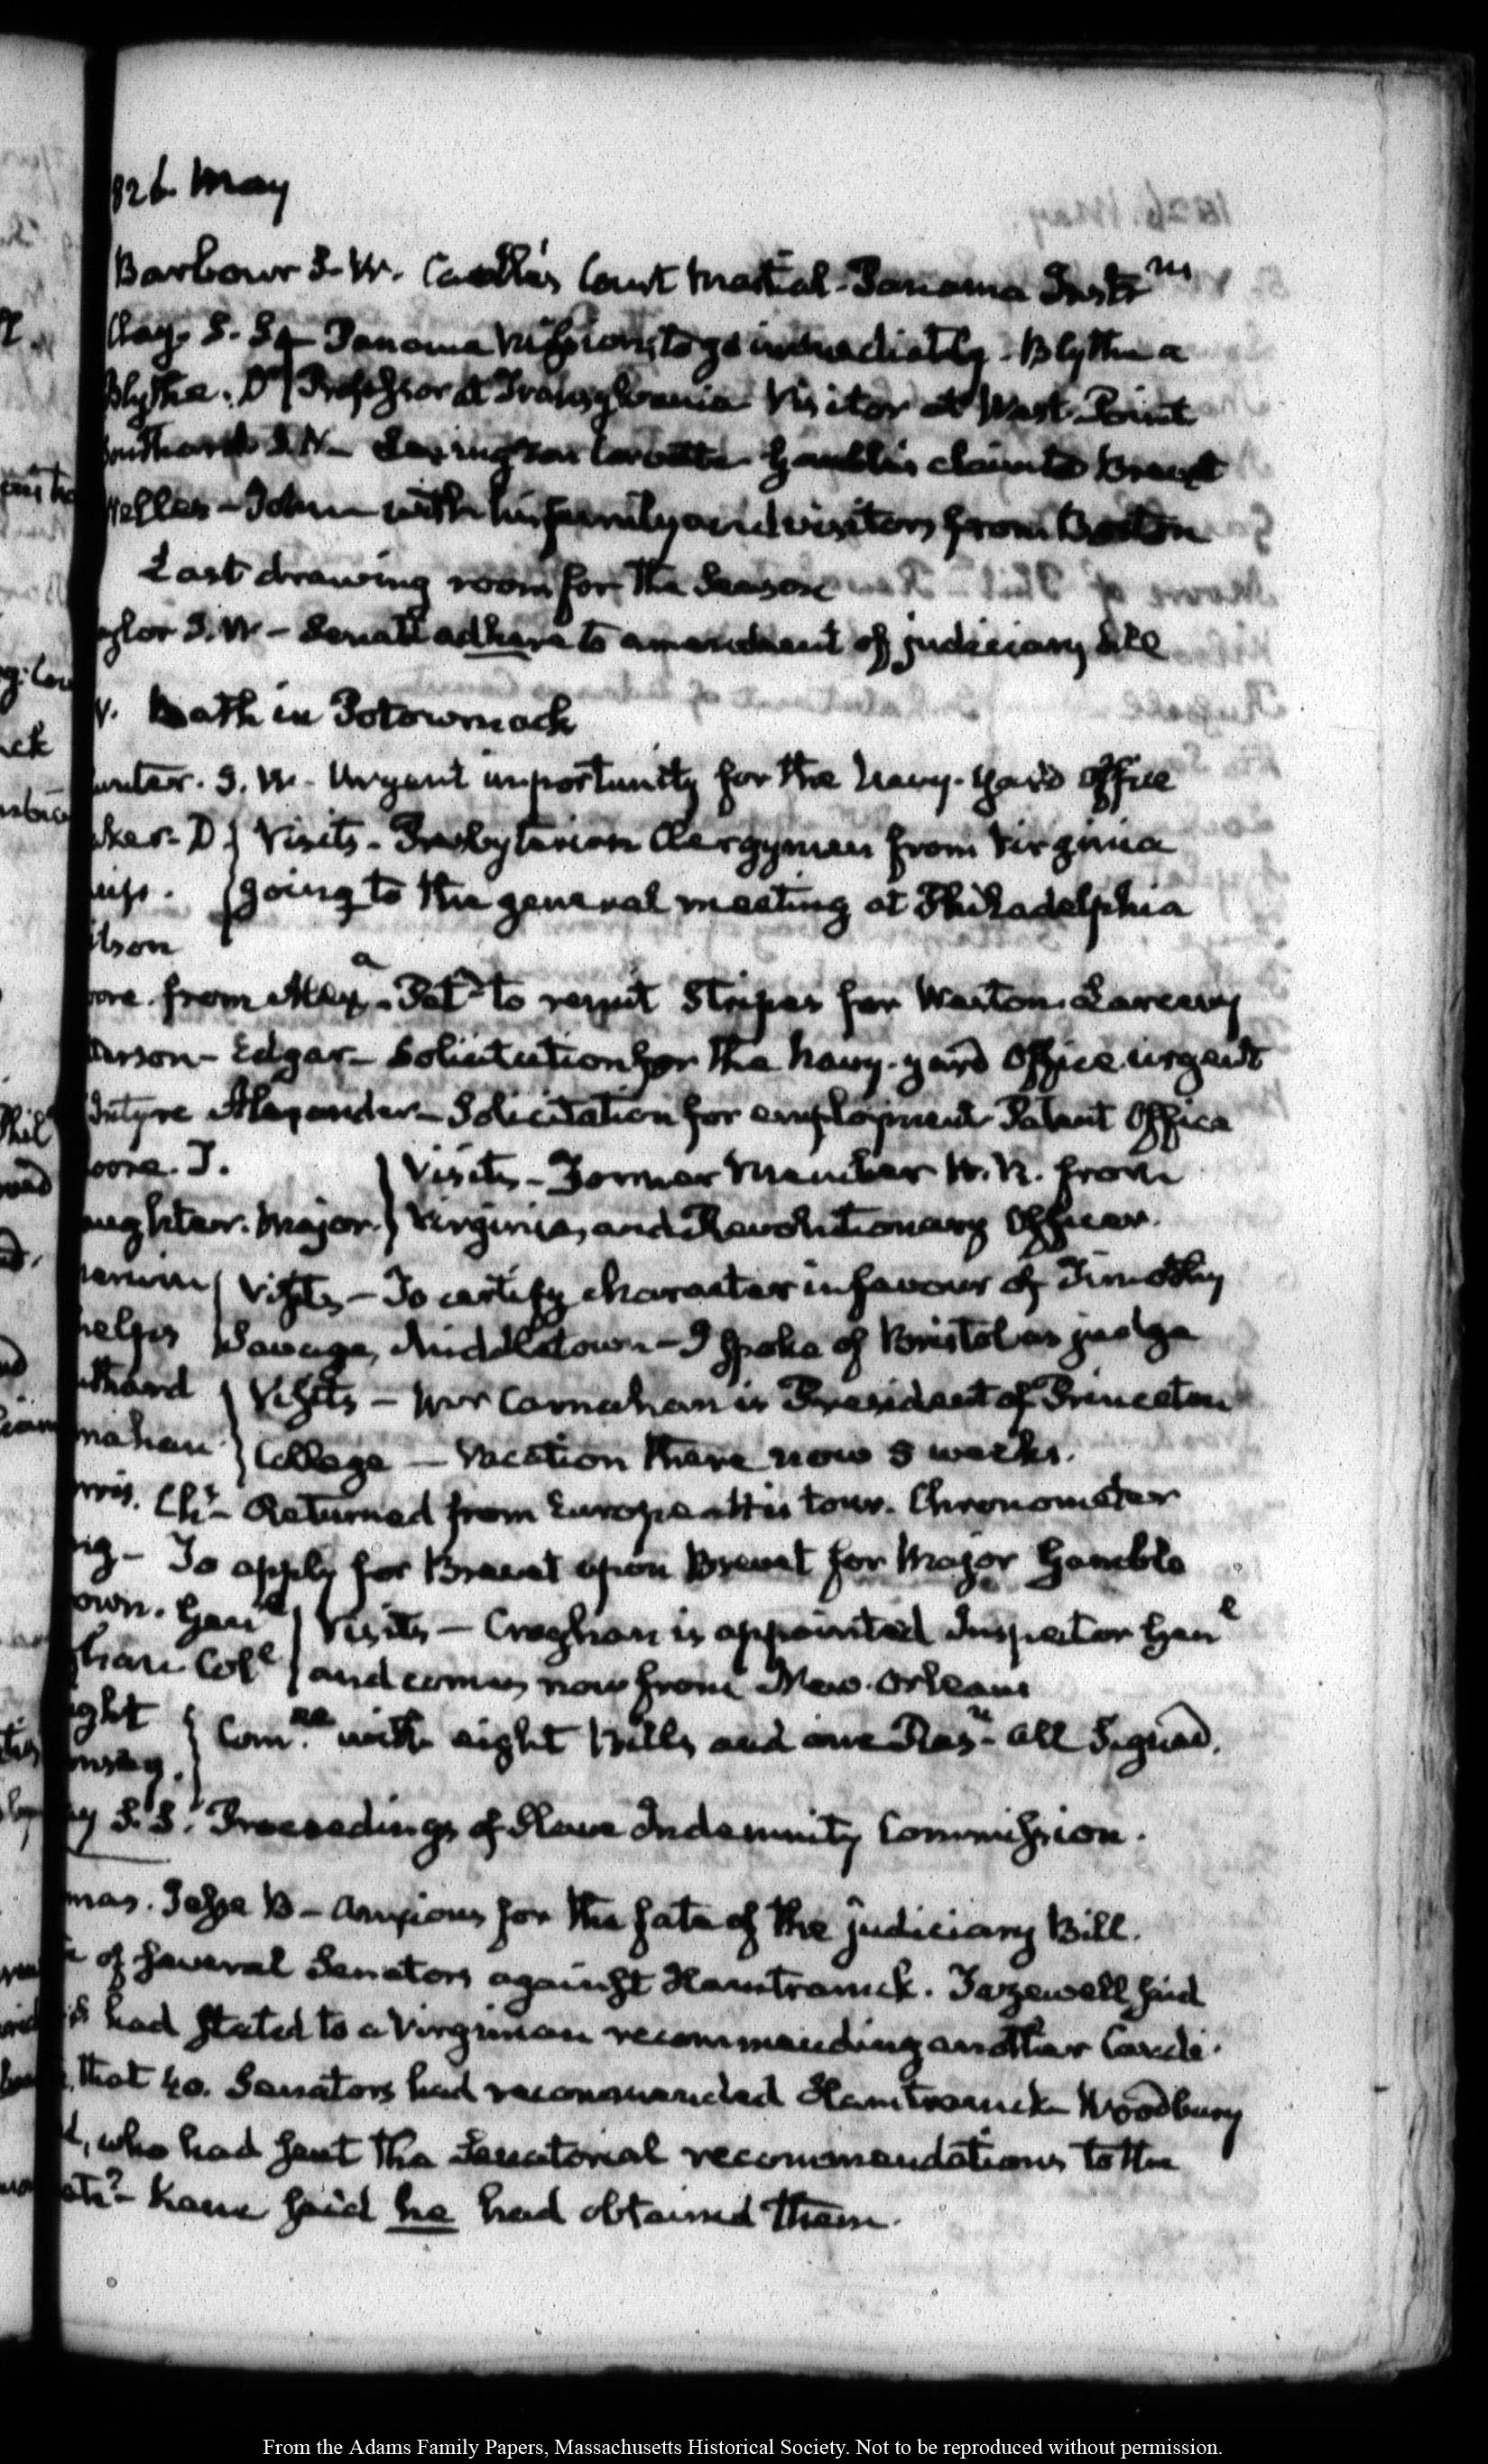 826. May
Barbour S. W. Court Martial - Panama Instrns
Clay. S. St Panama Mission, to go immediately - Blythe a
Blythe. Dr } Professor at Transylvania Visitor at West-Point
Southard S. N. Lexington Corvette - Gamble's claim to Brevet
Welles - John with his family and visitors from Boston
Last drawing room for the Season
ylor S. W - Senate adhere to amendment of judiciary bill
V. Bath in Potowmack
unter. S. W. Urgent importunity for the Navy-yard Office
aker. D } Visits - Presbyterian Clergymen from Virginia
going to the general meeting at Philadelphia
ilson
oore from Alexa - Petn to remit Stripes for Larceny
erson - Edgar - Solicitation for the Navy-yard Office urgent
Intyre Alexander - Solicitation for employment Patent Office
oore. T. } Visits - Former Member H. R. from
aughter. Major. } Virginia, and Revolutionary Officer.
Visits - To certify character in favour of Timothy
helps Savage, Middletown - I spoke of Bristol as judge
uthard } Visits - Mr Carnahan is President of Princeton
nahan } College - Vacation there now 5 weeks.
rris. Chs - Returned from Europe - His tour. Chronometer
ig - To apply for Brevet upon Brevet for Major Gamble
own. Genl } Visits - Croghan is appointed Inspector Genl
ghan Coll } and comes now from New-Orleans
ght } Comee with eight Bills and one Resn - all Signed.
y S. S. Proceedings of Slave Indemnity Commission.
mas. Jesse B - Anxious for the fate of the judiciary Bill.
of several Senators against Hamtramck. Tazewell said
had stated to a Virginian recommending another Candi-
that 40. Senators had recommended Hamtramck - Woodbury
d, who had sent the Senatorial recommendations to the
ate? - Kane said he had obtained them.
From the Adams Family Papers, Massachusetts Historical Society. Not to be reproduced without permission.